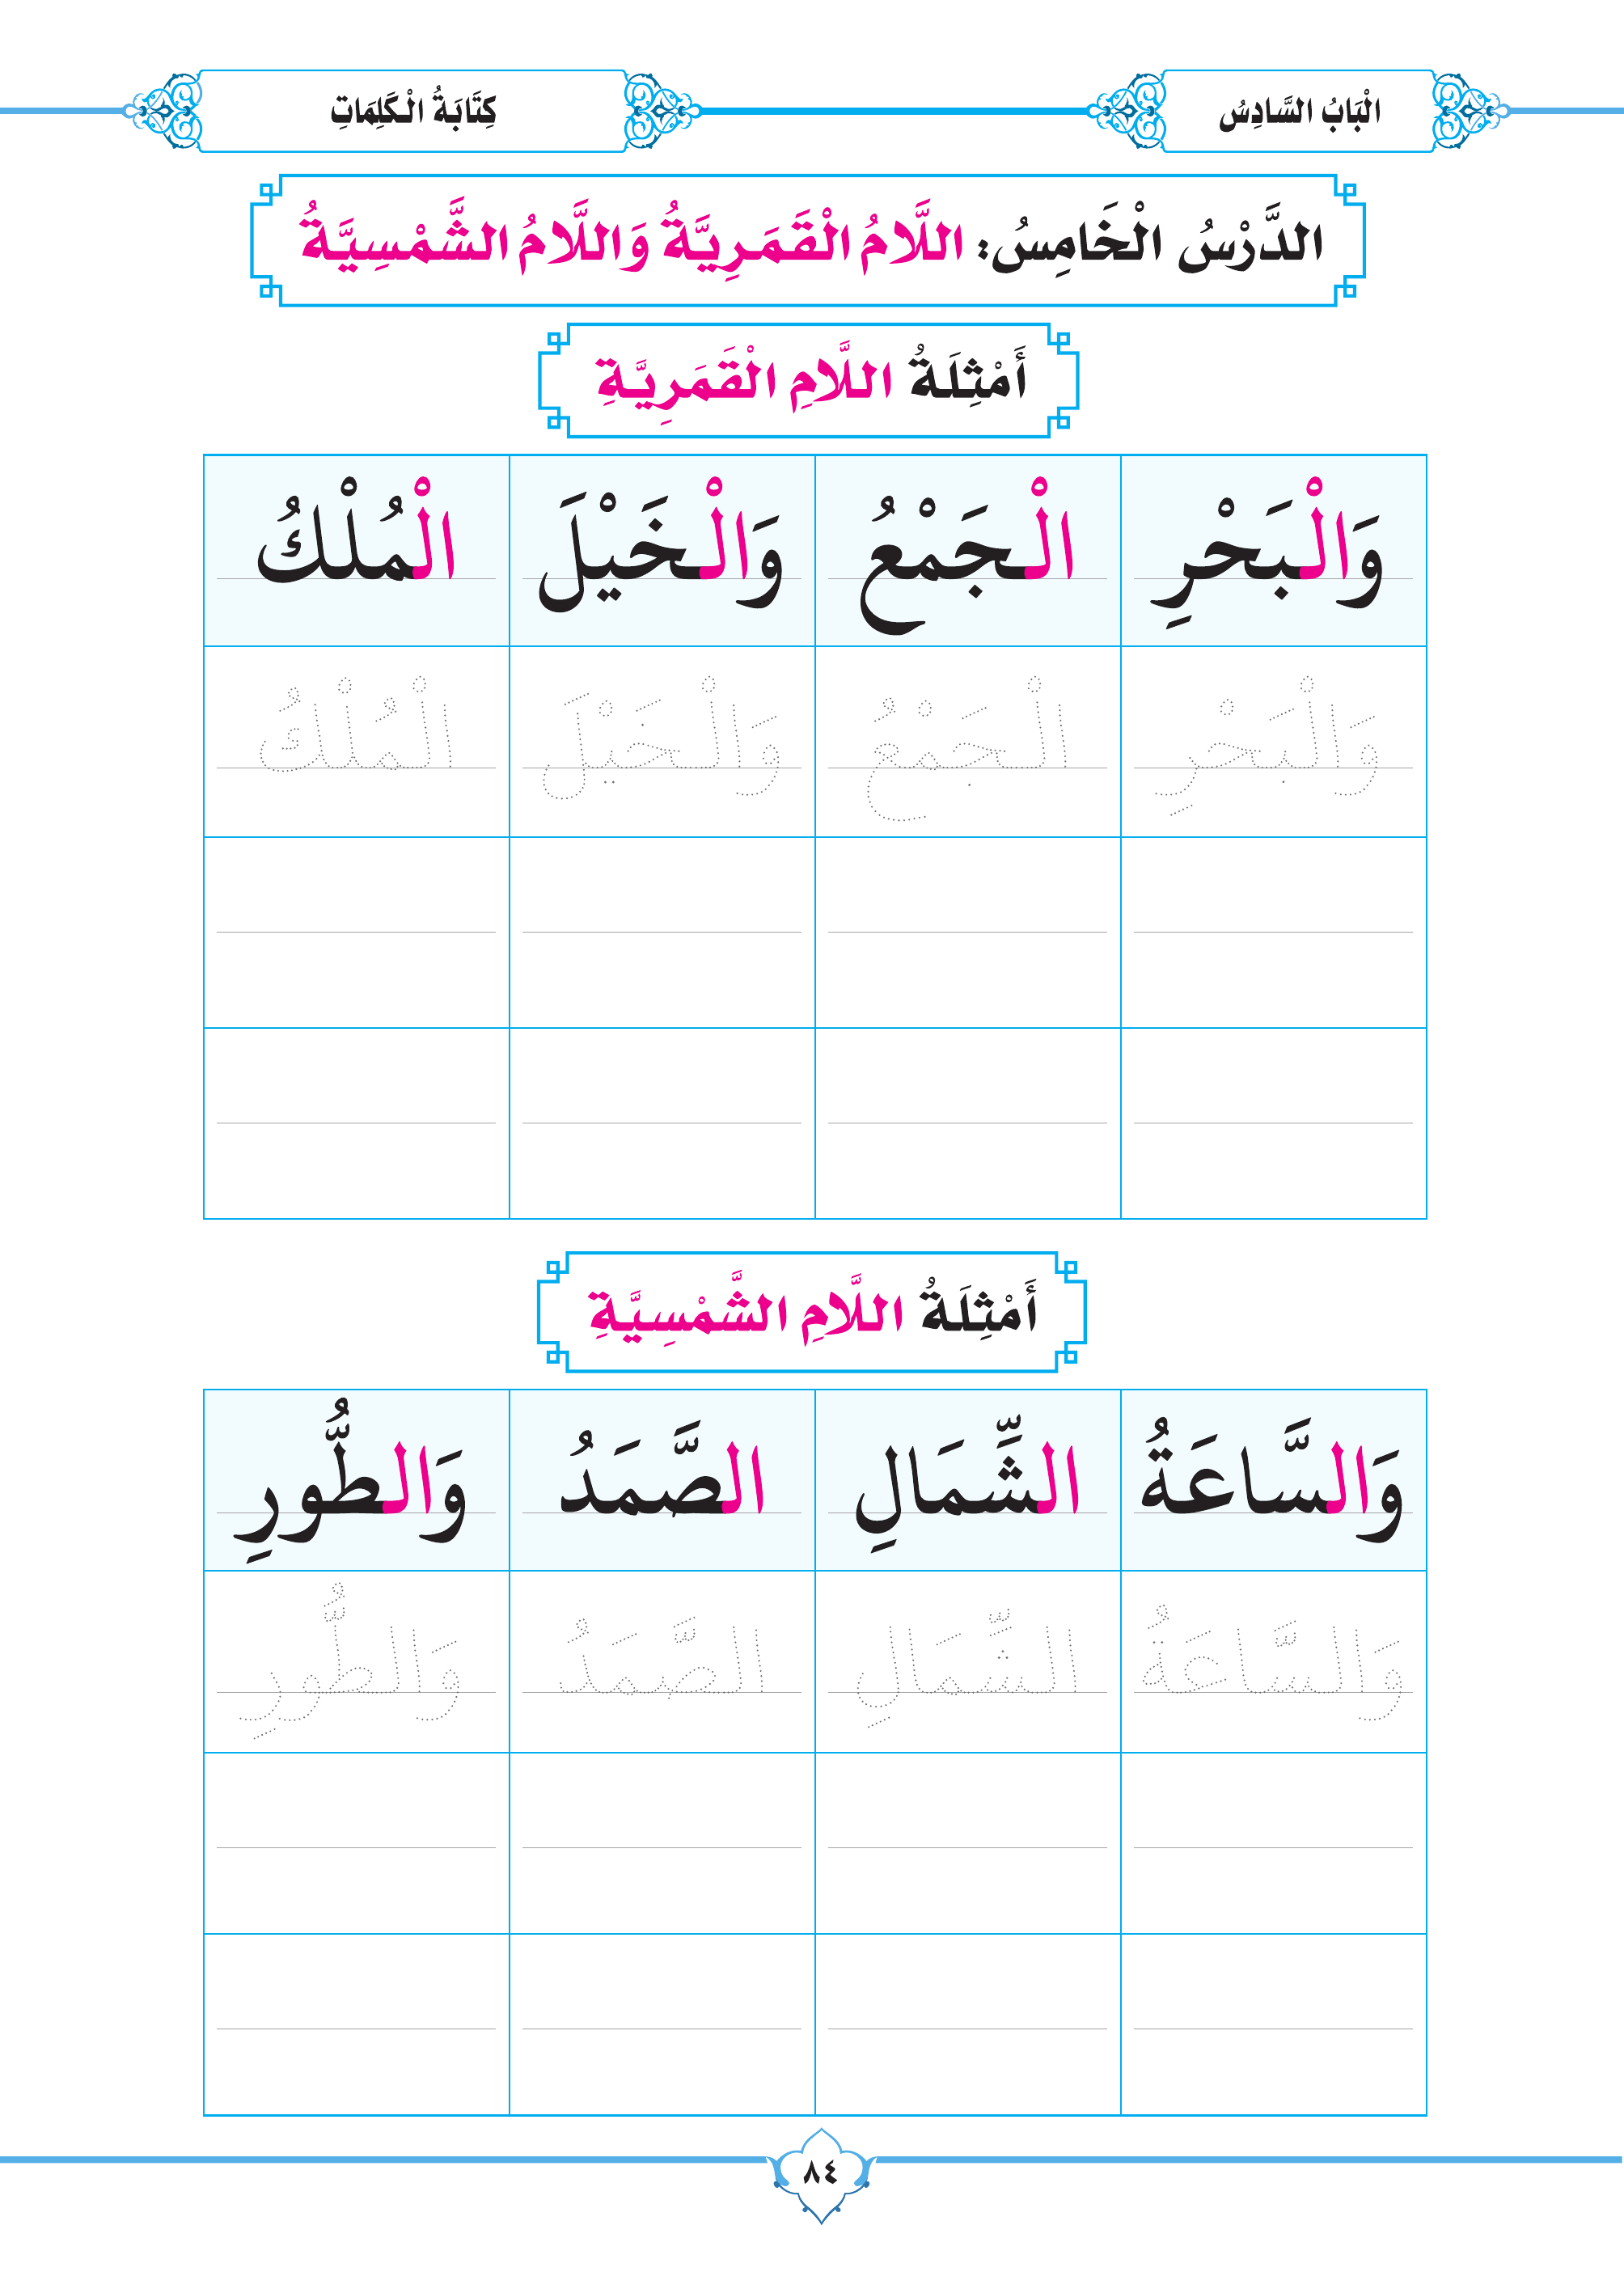 الْبَابُ السَّادِسُ
كِتَابَةُ الْكَلِمَاتِ
الدَّرْسُ الْخَامِسُ: اللَّامُ الْقَمَرِيَّةُ وَاللَّامُ الشَّمْسِيَّةُ
أَمْثِلَةُ اللَّامِ الْقَمَرِيَّةِ
وَالْبَحْرِ الْجَمْعُ وَالْخَيْلَ الْمُلْكُ
وَالْبَحْرِ الْجَمْعُ وَالْخَيْلَ الْمُلْكُ
أَمْثِلَةُ اللَّامِ الشَّمْسِيَّةِ
وَالسَّاعَةُ الشِّمَالِ الصَّمَدُ وَالطُّورِ
وَالسَّاعَةُ الشِّمَالِ الصَّمَدُ وَالطُّورِ
٨٤